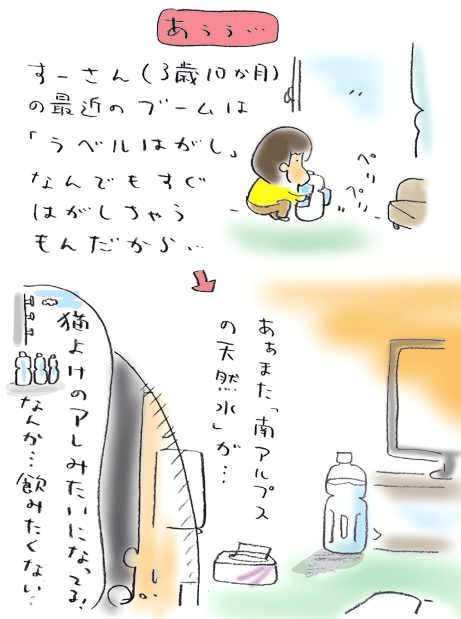 あぅぅぅ…
すーさん(3歳10か月)
の最近のブームは
「ラベルはがし」
なんでもすぐ
はがしちゃう
もんだから…
ペリ
ペリ
あぁまた「南アルプス
の天然水」が…
猫よけのアレみたいになってる!
なんか…飲みたくない…